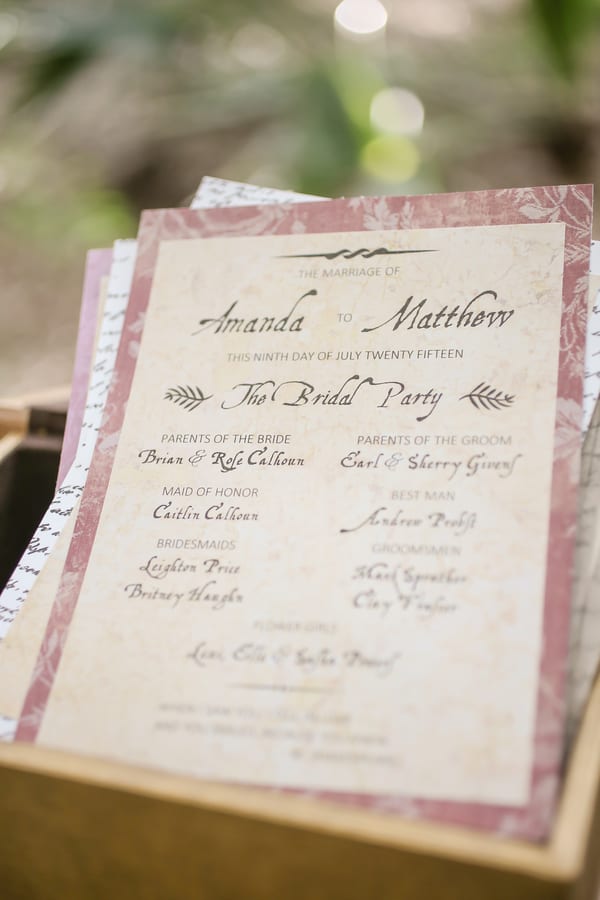 THE MARRIAGE OF
Amanda TO Matthew
THIS NINTH DAY OF JULY TWENTY FIFTEEN
The Bridal Party
PARENTS OF THE BRIDE
Brian & Rose Calhoun
PARENTS OF THE GROOM
Earl & Sherry Givens
MAID OF HONOR
Caitlin Calhoun
BEST MAN
Andrew Probst
BRIDESMAIDS
Leighton Price
Britney Haughn
GROOMSMEN
Mark
Clay
FLOWER GIRLS
&
WHEN I SAW YOU I FELL
AND YOU SMILED BECAUSE YOU